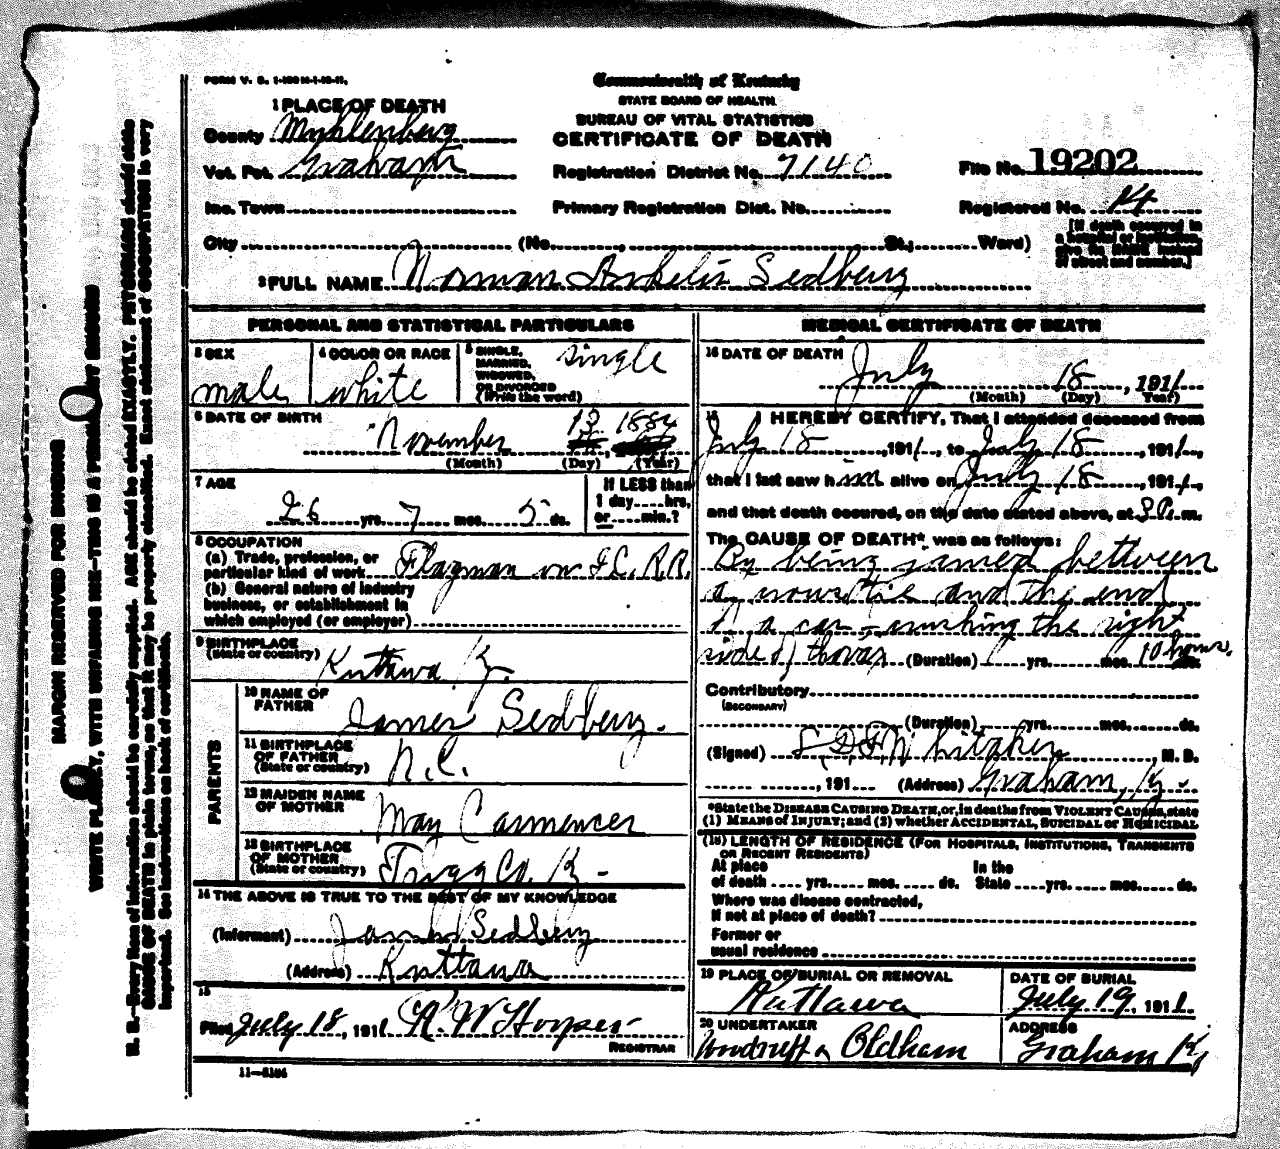 FORM V. S. 1-
Commonwealth of Kentucky
STATE BOARD OF HEALTH
BUREAU OF VITAL STATISTICS
CERTIFICATE OF DEATH
1 PLACE OF DEATH
County Muhlenberg
Vot. Pct. Graham
Registration District No. 7140
File No. 19202
Inc. Town
Primary Registration Dist. No.
Registered No. 14
City (No. , St.; Ward)
[If death occurred in a hospital or institution, give its NAME instead of street and number.]
2 FULL NAME Norman Sedberry
PERSONAL AND STATISTICAL PARTICULARS
3 SEX
male
4 COLOR OR RACE
white
5 SINGLE, MARRIED, WIDOWED, OR DIVORCED (Write the word)
single
6 DATE OF BIRTH
November 13 1884
(Month) (Day) (Year)
7 AGE
26 yrs. 7 mos. 5 ds.
If LESS than 1 day....hrs, or....min.?
8 OCCUPATION
(a) Trade, profession, or particular kind of work Flagman on I.C. R.R.
(b) General nature of industry business, or establishment in which employed (or employer)
9 BIRTHPLACE (State or country) Kuttawa Ky.
PARENTS
10 NAME OF FATHER James Sedberry.
11 BIRTHPLACE OF FATHER (State or country) N.C.
12 MAIDEN NAME OF MOTHER May
13 BIRTHPLACE OF MOTHER (State or country) Trigg Co. Ky -
14 THE ABOVE IS TRUE TO THE BEST OF MY KNOWLEDGE
(Informant) James Sedberry
(Address) Kuttawa
15
Filed July 18, 1911 W Hooper
REGISTRAR
11—5186
MEDICAL CERTIFICATE OF DEATH
16 DATE OF DEATH
July 18, 1911
(Month) (Day) (Year)
17 I HEREBY CERTIFY, That I attended deceased from
July 18, 1911, to July 18, 1911,
that I last saw him alive on July 18, 1911,
and that death occured, on the date stated above, at 3 P. m.
The CAUSE OF DEATH* was as follows:
By being jamed between
a and the end
of a car - crushing the right
side of thorax (Duration) yrs. mos. 10 hours.
Contributory
(SECONDARY)
(Duration) yrs. mos. ds.
(Signed) Whitaker, M. D.
, 191 (Address) Graham, Ky.
*State the DISEASE CAUSING DEATH, or, in deaths from VIOLENT CAUSES, state
(1) MEANS OF INJURY; and (2) whether ACCIDENTAL, SUICIDAL or HOMICIDAL
(18) LENGTH OF RESIDENCE (FOR HOSPITALS, INSTITUTIONS, TRANSIENTS
OR RECENT RESIDENTS)
At place of death .... yrs. .... mos. .... ds. In the State .... yrs. .... mos. .... ds.
Where was disease contracted,
if not at place of death?
Former or
usual residence
19 PLACE OF BURIAL OR REMOVAL
Kuttawa
DATE OF BURIAL
July 19, 1911.
20 UNDERTAKER
Woodruff & Oldham
ADDRESS
Graham Ky
MARGIN RESERVED FOR BINDING
WRITE PLAINLY, WITH UNFADING INK—THIS IS A PERMANENT RECORD
N. B.—Every item of information should be carefully supplied. AGE should be stated EXACTLY. PHYSICIANS should state
CAUSE OF DEATH in plain terms, so that it may be properly classified. Exact statement of OCCUPATION is very
important. See instructions on back of certificate.